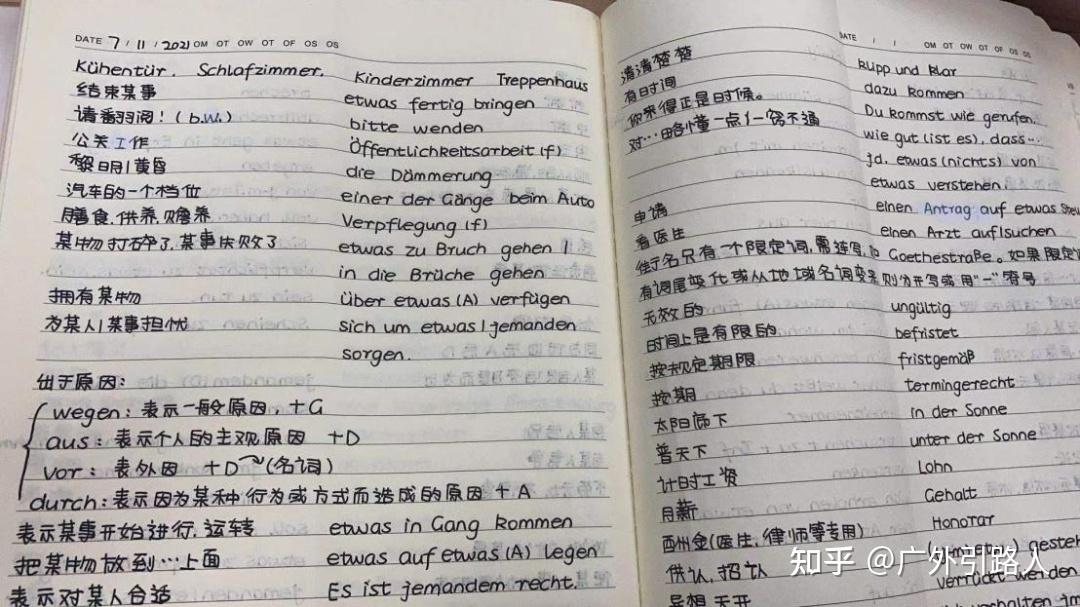 DATE 7 / 11 / 2021 OM OT OW OT OF OS OS
Kühentür. Schlafzimmer. Kinderzimmer Treppenhaus
结束某事 etwas fertig bringen
请翻阅! (b.w.) bitte wenden
公关工作 Öffentlichkeitsarbeit (f)
黎明/黄昏 die Dämmerung
汽车的一个档位 einer der Gänge beim Auto
膳食,供养,赡养 Verpflegung (f)
某物打碎了,某事失败了 etwas zu Bruch gehen /
in die Brüche gehen
拥有某物 über etwas (A) verfügen
为某人/某事担忧 sich um etwas/jemanden
sorgen.
出于原因:
wegen: 表示一般原因, +G
aus: 表示个人的主观原因 +D
vor: 表外因 +D (名词)
durch: 表示因为某种行为或方式而造成的原因 + A
表示某事开始进行,运转 etwas in Gang kommen
把某物放到…上面 etwas auf etwas (A) legen
表示对某人合适 Es ist jemandem recht.
DATE / / OM OT OW OT OF OS OS
清清楚楚 klipp und klar
有时间 dazu kommen
你来得正是时候。 Du kommst wie gerufen.
对…略懂一点/一窍不通 wie gut (ist es), dass…
jd. etwas (nichts) von
etwas verstehen.
申请 einen Antrag auf etwas
看医生 einen Arzt aufsuchen
街名只有一个限定词,需连写,如 Goethestraße。如果限定词
有词尾变化或从地域名词变来则分开写或用"-"符号
无效的 ungültig
时间上是有限的 befristet
按规定期限 fristgemäß
按期 termingerecht
太阳底下 in der Sonne
普天下 unter der Sonne
计时工资 Lohn
月薪 Gehalt
酬金(医生,律师等专用) Honorar
供认,招认
异想天开 verrückt werden
知乎 @广外引路人